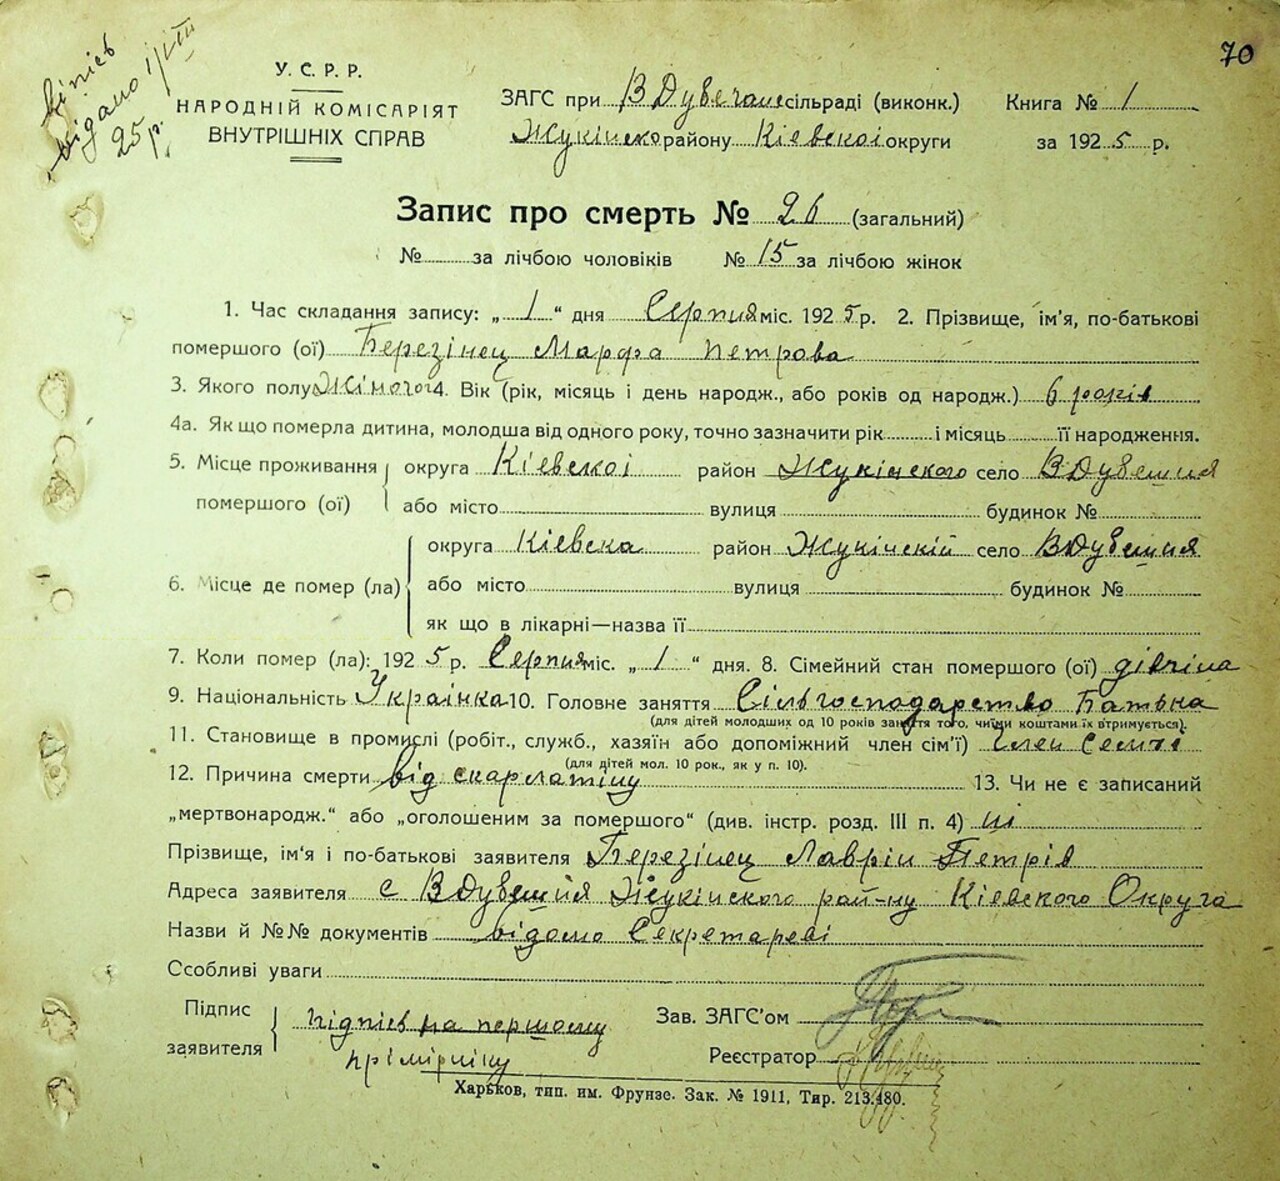 70
Відано 1/VIII
25 р.
У. С. Р. Р.
НАРОДНІЙ КОМІСАРІЯТ
ВНУТРІШНІХ СПРАВ
ЗАГС при В Дубечанс сільраді (виконк.) Книга № 1
Жукінско району Кіевскоі округи за 1925 р.
Запис про смерть № 26 (загальний)
№ за лічбою чоловіків № 15 за лічбою жінок
1. Час складання запису: „1“ дня Серпня міс. 1925 р. 2. Прізвище, ім'я, по-батькові
помершого (ої) Березінец Марфа Петрова
3. Якого полу Жіночог 4. Вік (рік, місяць і день народж., або років од народж.) 6 років
4а. Як що померла дитина, молодша від одного року, точно зазначити рік і місяць її народження.
5. Місце проживання помершого (ої) округа Кіевскоі район Жукінского село В Дубешня
або місто вулиця будинок №
6. Місце де помер (ла) округа Кіевска район Жукінскій село В Дубешня
або місто вулиця будинок №
як що в лікарні—назва її
7. Коли помер (ла): 1925 р. Серпня міс. „1“ дня. 8. Сімейний стан помершого (ої) дівчіна
9. Національність Украінка 10. Головне заняття Сільгосподарство Батька
(для дітей молодших од 10 років заняття того, чиїми коштами їх втримується).
11. Становище в промислі (робіт., служб., хазяїн або допоміжний член сім'ї) Член Семі
(для дітей мол. 10 рок., як у п. 10).
12. Причина смерти від скарлатіну 13. Чи не є записаний
„мертвонародж.“ або „оголошеним за помершого“ (див. інстр. розд. III п. 4) ні
Прізвище, ім'я і по-батькові заявителя Березінец Лаврін Петрів
Адреса заявителя с В Дубешня Жукінского рай-ну Кіевского Округа
Назви й №№ документів відомо Секретареві
Особливі уваги
Підпис заявителя Підпісв на першому Зав. ЗАГС'ом
прімірніку Реєстратор
Харьков, тип. им. Фрунзе. Зак. № 1911, Тир. 213.480.